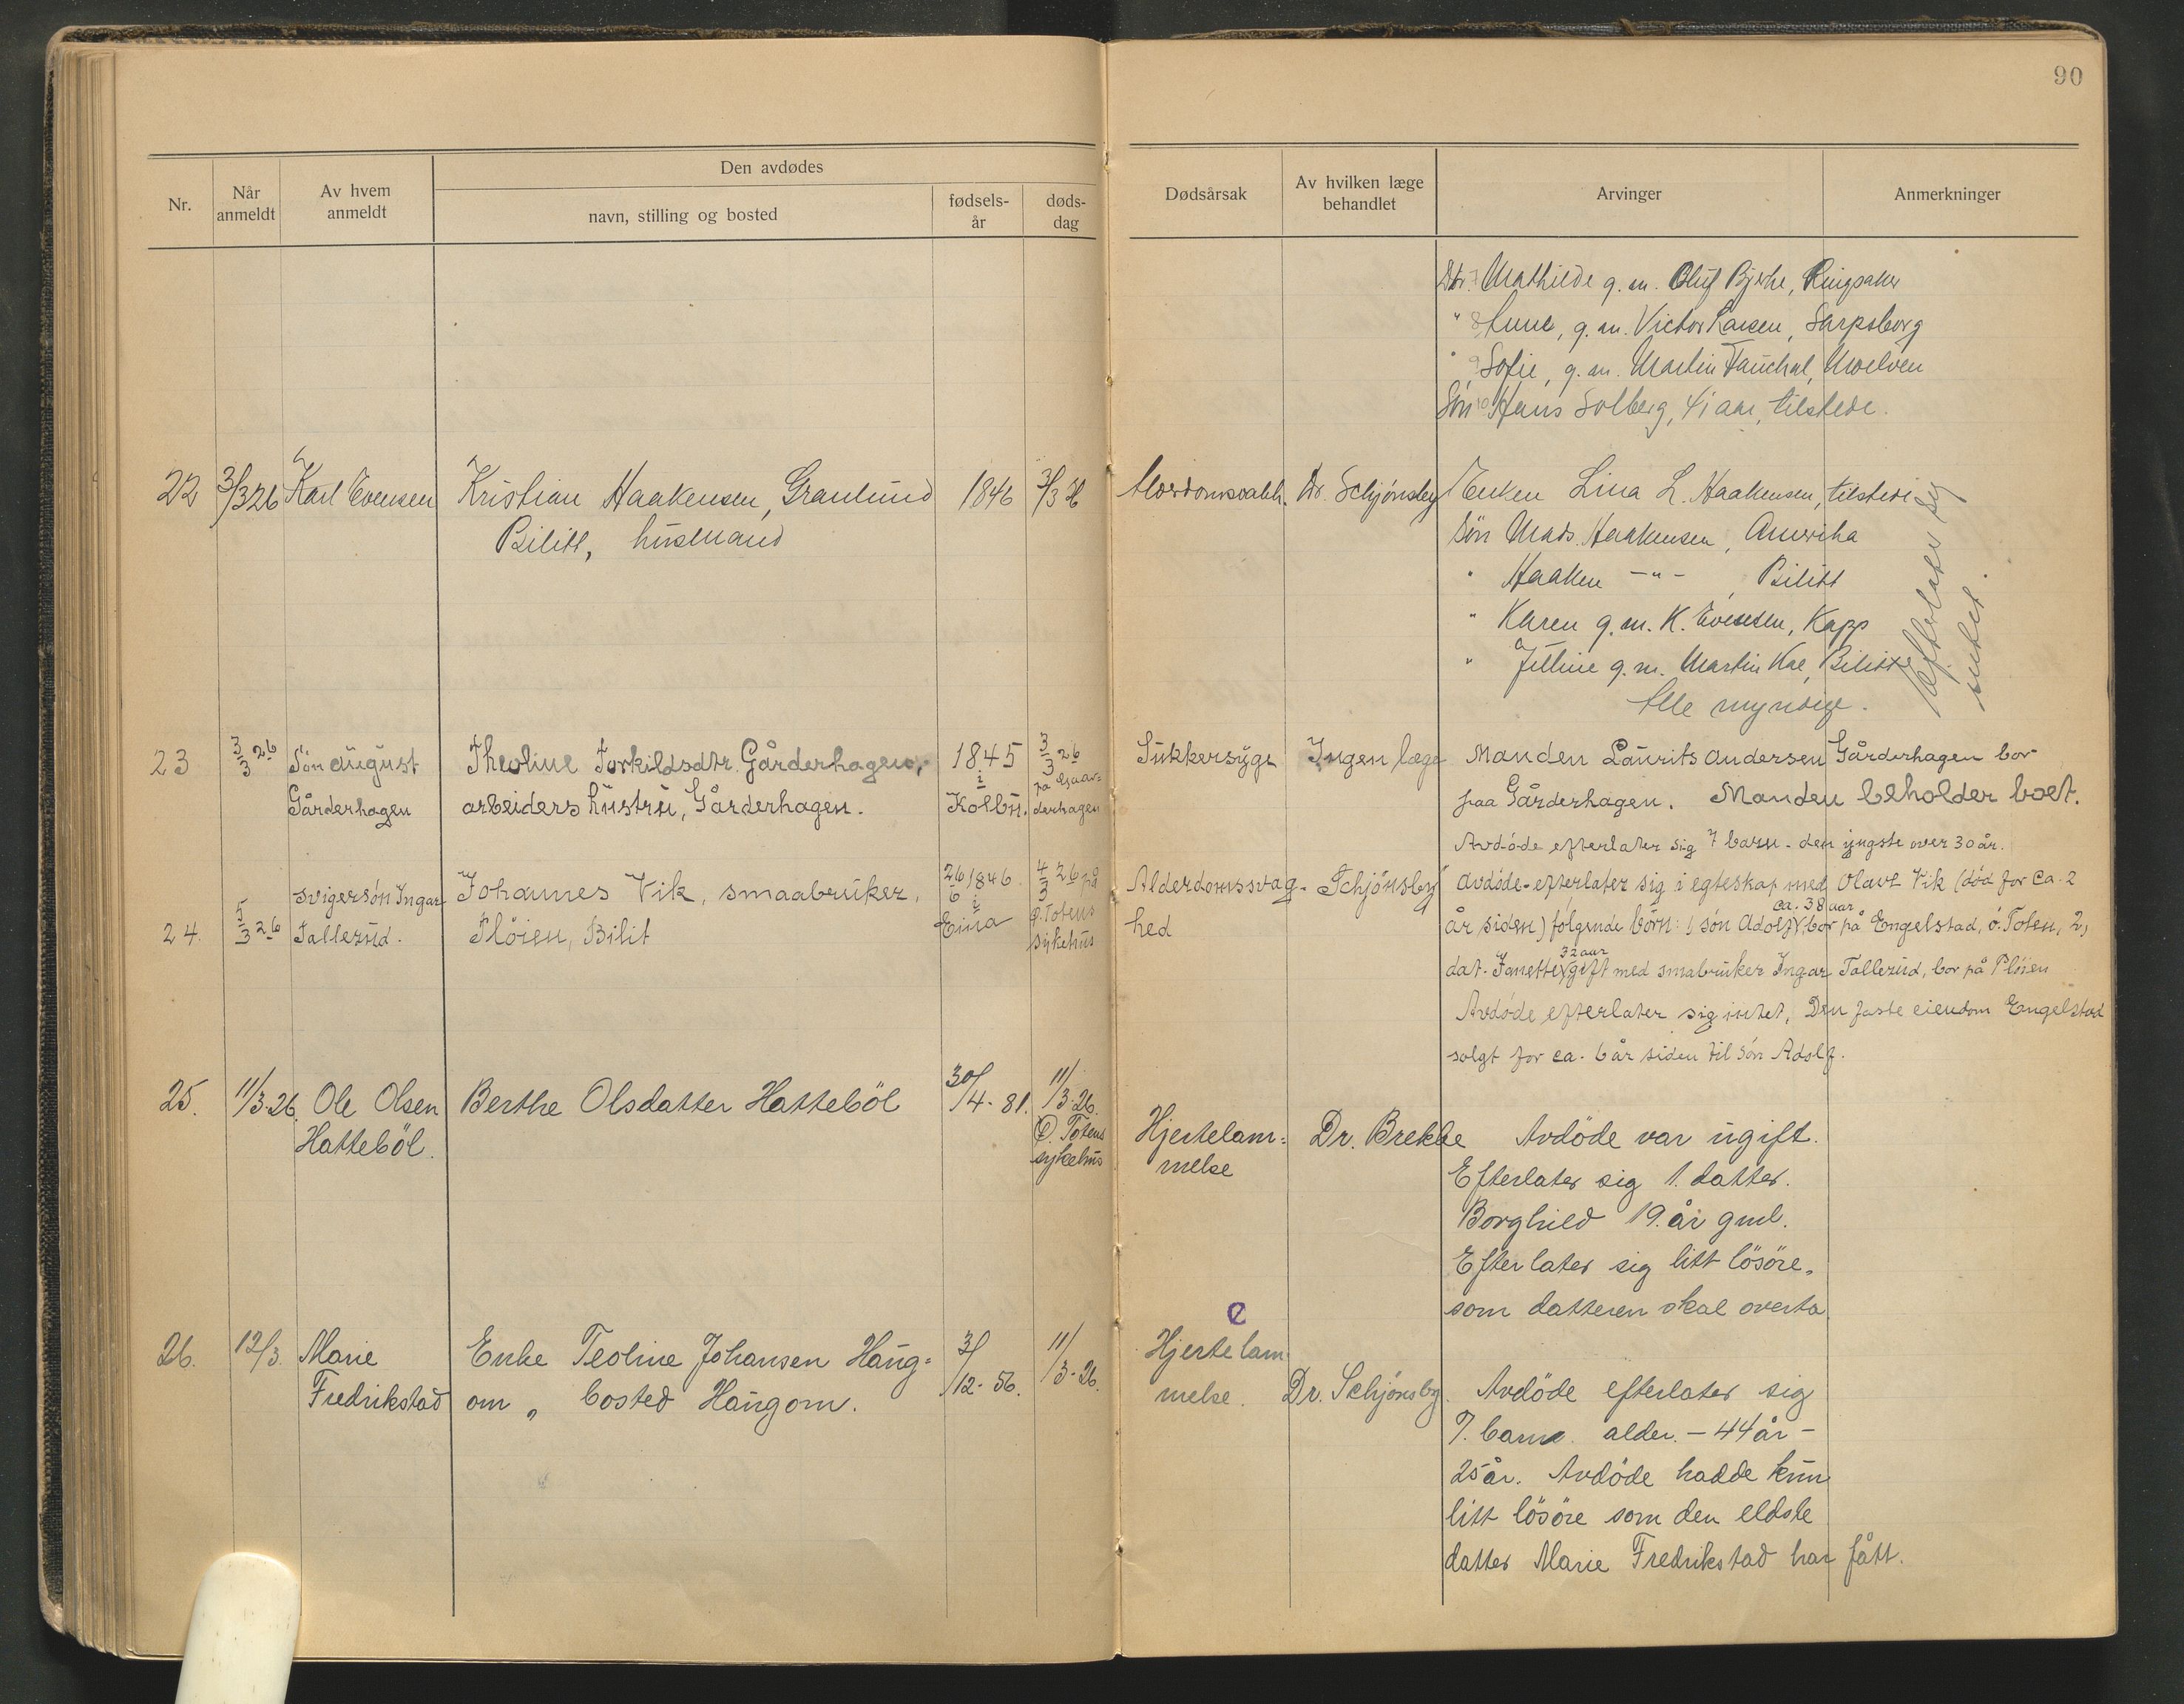 90
Nr.
Når anmeldt
Av hvem anmeldt
Den avdødes
navn, stilling og bosted
fødsels-år
døds-dag
Dødsårsak
Av hvilken læge behandlet
Arvinger
Anmerkninger
Dtr. 7 Mathilde g. m. Oluf Bjerke, Ringsaker
" 8 Anne, g. m. Victor Larsen, Sarpsborg
" 9 Sofie, g. m. Martin, Moelven
Sön 10 Hans Solberg, 41 aar, tilstede.
22
3/3 26
Karl Evensen
Kristian Haakensen, Granlund
Bilitt, husmand
1846
3/3 26
Alderdomssvakh.
Dr. Schjönsby
Enken Lina L. Haakensen, tilstede
Sön Mads Haakensen, Amerika
" Haaken -"- , Bilitt
" Karen g. m. K. Evensen, Kapp
" g. m. Martin, Bilitt
Alle myndige.
Efterlater sig
intet.
23
3/3 26
Sön August
Gårderhagen
Theoline Torkildsdtr. Gårderhagen,
arbeiders hustru, Gårderhagen.
1845
i
Kolbu.
3/3 26
på Gaar-
derhagen
Sukkersyge
Ingen læge
Manden Laurits Andersen Gårderhagen bor
paa Gårderhagen. Manden beholder boet.
Avdöde efterlater sig 7 barn - den yngste over 30 år.
24.
5/3 26
Svigersön Ingar
Tallerud.
Johannes Vik, smaabruker,
Plöien, Bilit
26/6 1846.
i
Eina
4/3 26 på
Ö. Totens
sykehus
Alderdomssvag-
hed
Schjönsby
Avdöde efterlater sig i egteskap med Olave Vik (död for ca. 2
ca. 38 aar
år siden) fölgende börn: 1, sön Adolf V, bor på Engelstad, ö. Toten, 2,
32 aar
dat. Janette V gift med smabruker Ingar Tallerud, bor på Plöien
Avdöde efterlater sig intet, Den faste eiendom Engelstad
solgt for ca. 6 år siden til sön Adolf.
25.
11/3-26.
Ole Olsen
Hatteböl.
Berthe Olsdatter Hatteböl
30/4-81.
11/3-26.
Ö. Totens
sykehus
Hjertelam=
melse
Dr. Brekke
Avdöde var ugift.
Efterlater sig 1. datter.
Borghild 19. år gml.
Efterlater sig litt lösöre.
som datteren skal overta
e
26.
12/3.
Marie
Fredrikstad
Enke Teoline Johansen Haug=
om „ bosted Haugom.
31/12-56.
11/3-26.
Hjertelam
melse.
Dr. Schjönsby.
Avdöde efterlater sig
7. barn alder. - 44 år -
25 år. Avdöde hadde kun
litt lösöre som den eldste
datter Marie Fredrikstad har fått.